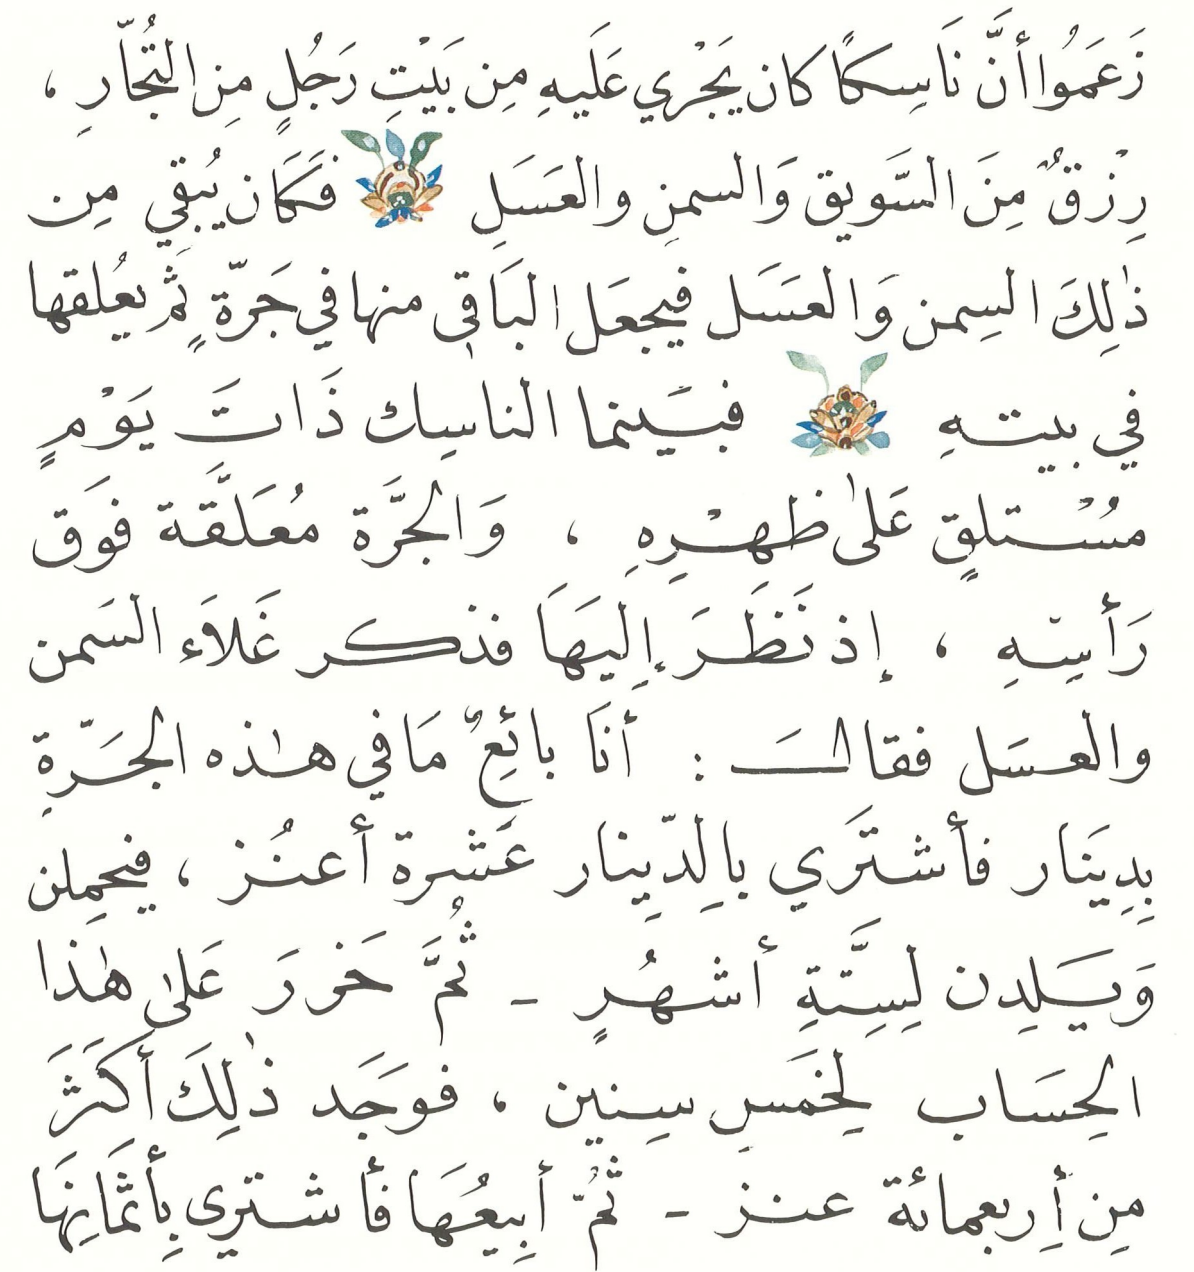 زَعَمُوا أَنَّ نَاسِكًا كان يَجْرِي عَلَيهِ مِن بَيْتِ رَجُلٍ مِن التُّجّارِ ،
رِزْقٌ مِنَ السَّوِيق وَالسمنِ والعَسَلِ فَكَان يُبقِي مِن
ذٰلِكَ السِمن وَالعسَل فيجعَل البَاقي منها في جَرّةٍ ثُم يعُلقها
في بيتهِ فبَينما الناسِك ذَاتَ يَوْمٍ
مُسْتلقٍ عَلىٰ ظهْرِهِ ، وَالجَرَّة مُعَلَّقَة فوَق
رَأسِهِ ، إِذ نَظَرَ إِليَهَا فذكر غَلاَء السَمن
والعسَل فقالَ : أنَا بائِعٌ مَا في هٰذه الجَرّةِ
بِدِينَار فأشتَري بالِدّيِنار عَشْرة أَعنُز ، فيحمِلن
وَيَلِدن لِسِتَّةِ أشهُرٍ - ثُمَّ حَزرَ عَلىٰ هٰذا
الحِسَاب لِخَمسِ سِنين ، فوَجَد ذٰلِكَ أَكثَرَ
مِن أربعمائة عنز - ثُمّ أبيعُهَا فَأشتري بِأَثمَانِهَا